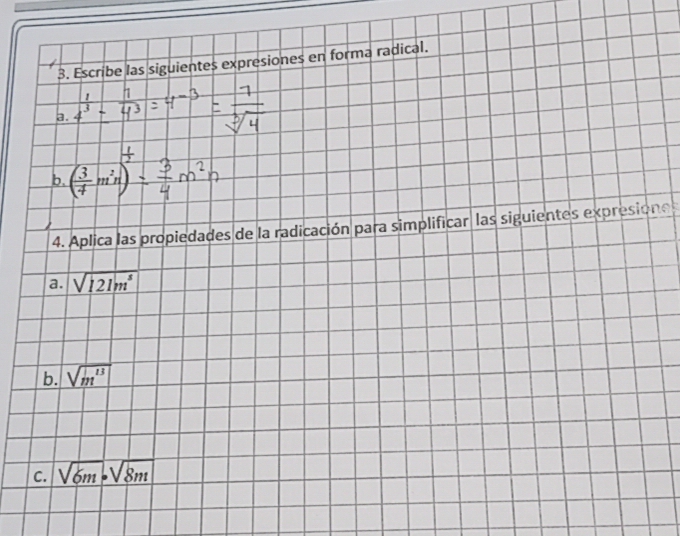 3. Escribe las siguientes expresiones en forma radical.
a. 4^(1/3) = 1/4^3 = 4^-3 = 1/∛4
b. (3/4 m²n)^(1/2) = 3/4 m²n
4. Aplica las propiedades de la radicación para simplificar las siguientes expresiones
a. √121m⁸
b. √m¹³
c. √6m • √8m